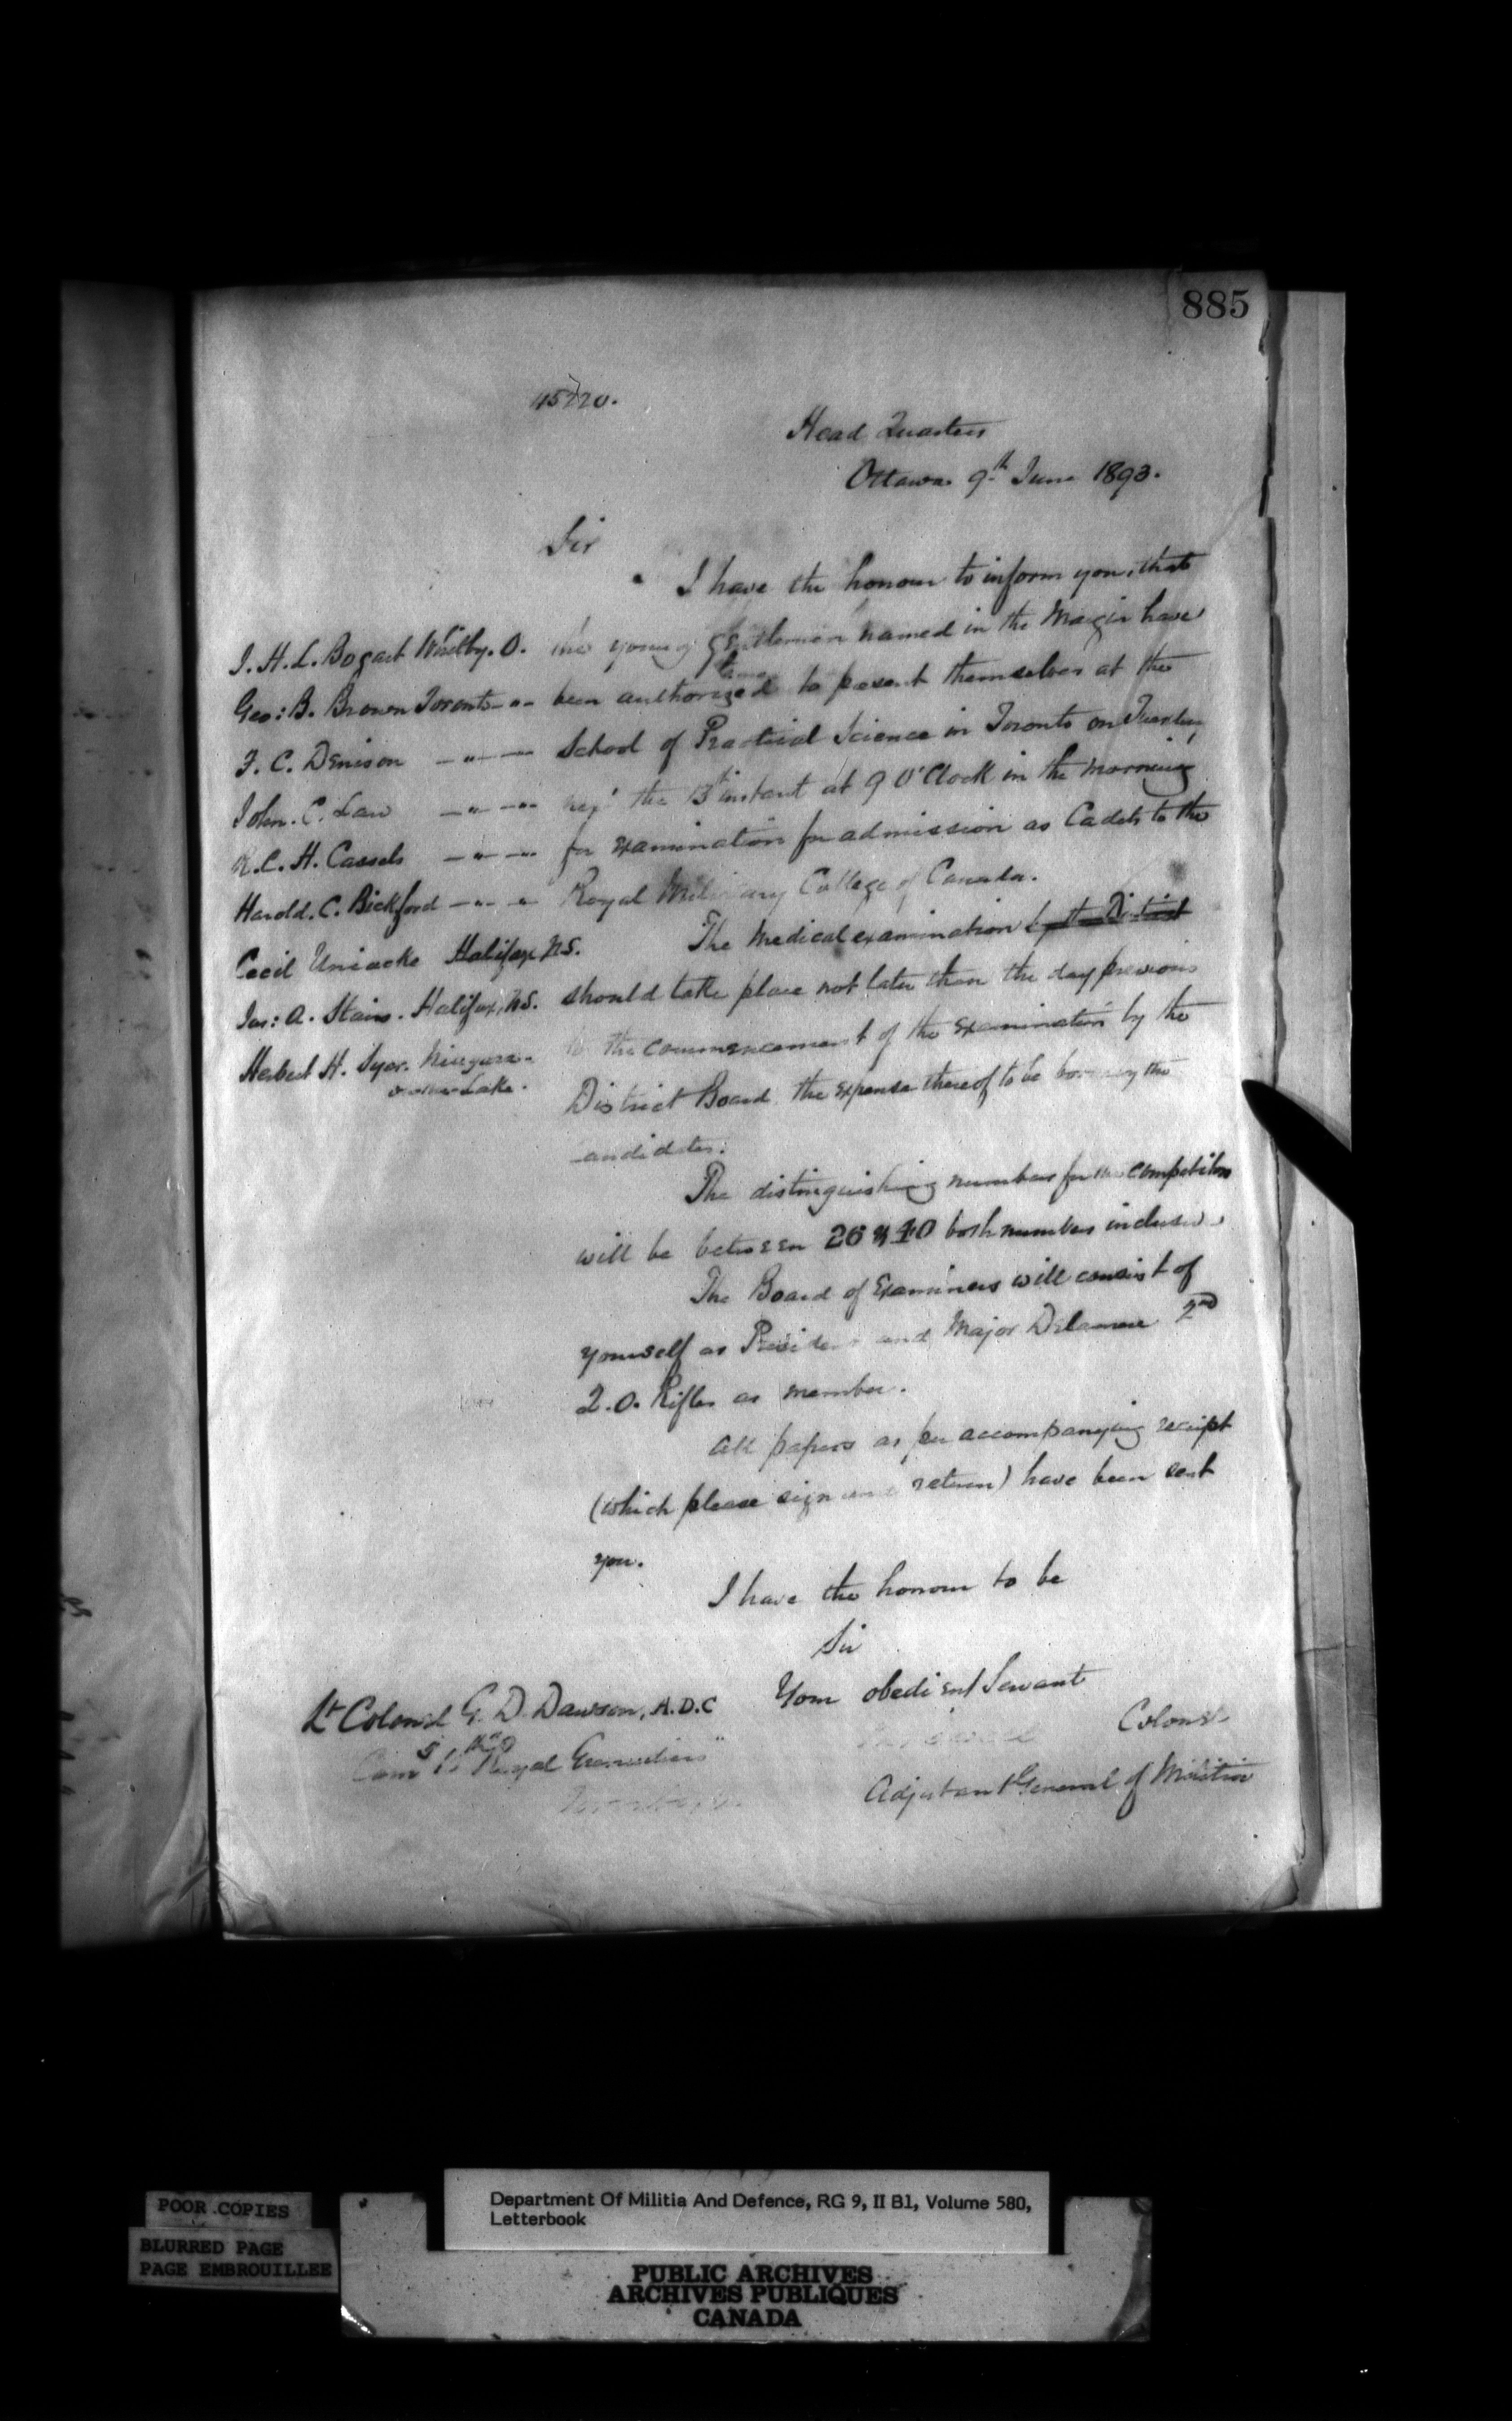 885
45220.
Head Quarters
Ottawa 9th June 1893.
Sir
I have the honour to inform you, that
J. H. L. Bogart Whitby. O. the young gentlemen named in the Margin have
Geo: B. Brown Toronto -"- been authorized to present themselves at the
F. C. Denison -"- -"- School of Practical Science in Toronto on Tuesday
John. C. Law -"- -"- the 13th instant at 9 O'Clock in the morning
R. C. H. Cassels -"- -"- for examination for admission as Cadets to the
Harold. C. Bickford -"- -"- Royal Military College of Canada.
Cecil Uniacke Halifax N.S. The Medical examination by the District
Jas: A. Stairs. Halifax, N.S. should take place not later than the day previous
Herbert H. Syer. Niagara to the commencement of the examination by the
on the Lake. District Board the expense thereof to be borne by the
candidates.
The distinguishing numbers for the competitors
will be between 26 & 40 both numbers inclusive
The Board of Examiners will consist of
yourself as President and Major Delamere 2nd
Q.O. Rifles as member.
All papers as per accompanying receipt
(which please sign and return) have been sent
you.
I have the honour to be
Sir
Your obedient Servant
Lt Colonel G. D. Dawson, A.D.C
Colonel
Royal Grenadiers"
Adjutant General of Militia
POOR COPIES
BLURRED PAGE
PAGE EMBROUILLEE
Department Of Militia And Defence, RG 9, II B1, Volume 580,
Letterbook
PUBLIC ARCHIVES
ARCHIVES PUBLIQUES
CANADA